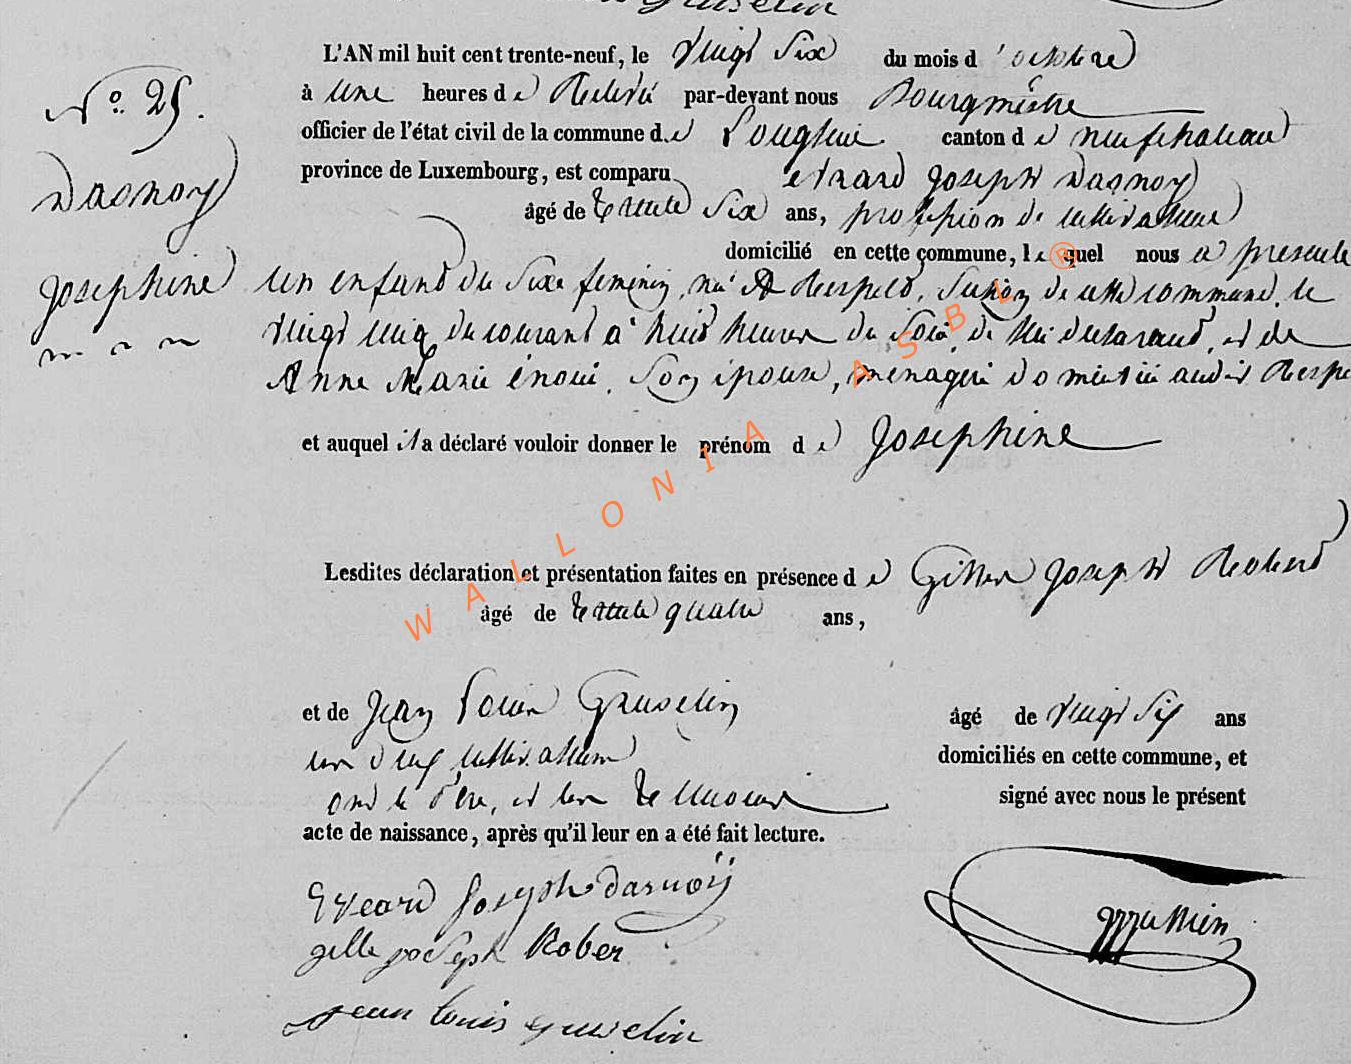 L'AN mil huit cent trente-neuf, le vingt six du mois d'octobre
N° 25.
à une heures de relevé par-devant nous Bourgmestre
officier de l'état civil de la commune de Longlier canton de neufchateau
province de Luxembourg, est comparu evrard Joseph Dasnoy
Dasnoy
âgé de trente six ans, profession de cultivateur
domicilié en cette commune, lequel nous a presenté
Josephine
un enfant du sexe feminin, né à respelt, section de cette commune, le
vingt cinq du courant à huit heures du soir, de lui déclarant, et de
Anne Marie énoui, son épouse, ménagere domiciliée audit respe
et auquel il a déclaré vouloir donner le prénom de Josephine
Lesdites déclaration et présentation faites en présence de Gilles Joseph Robert
âgé de trente quatre ans,
et de Jean Louis Gruselin âgé de vingt six ans
tous deux cultivateurs domiciliés en cette commune, et
ont le père, et les témoins signé avec nous le présent
acte de naissance, après qu'il leur en a été fait lecture.
Evrard Joseph dasnoÿ
gille joseph Rober
jean louis gruselin
WALLONIA ASBL
®